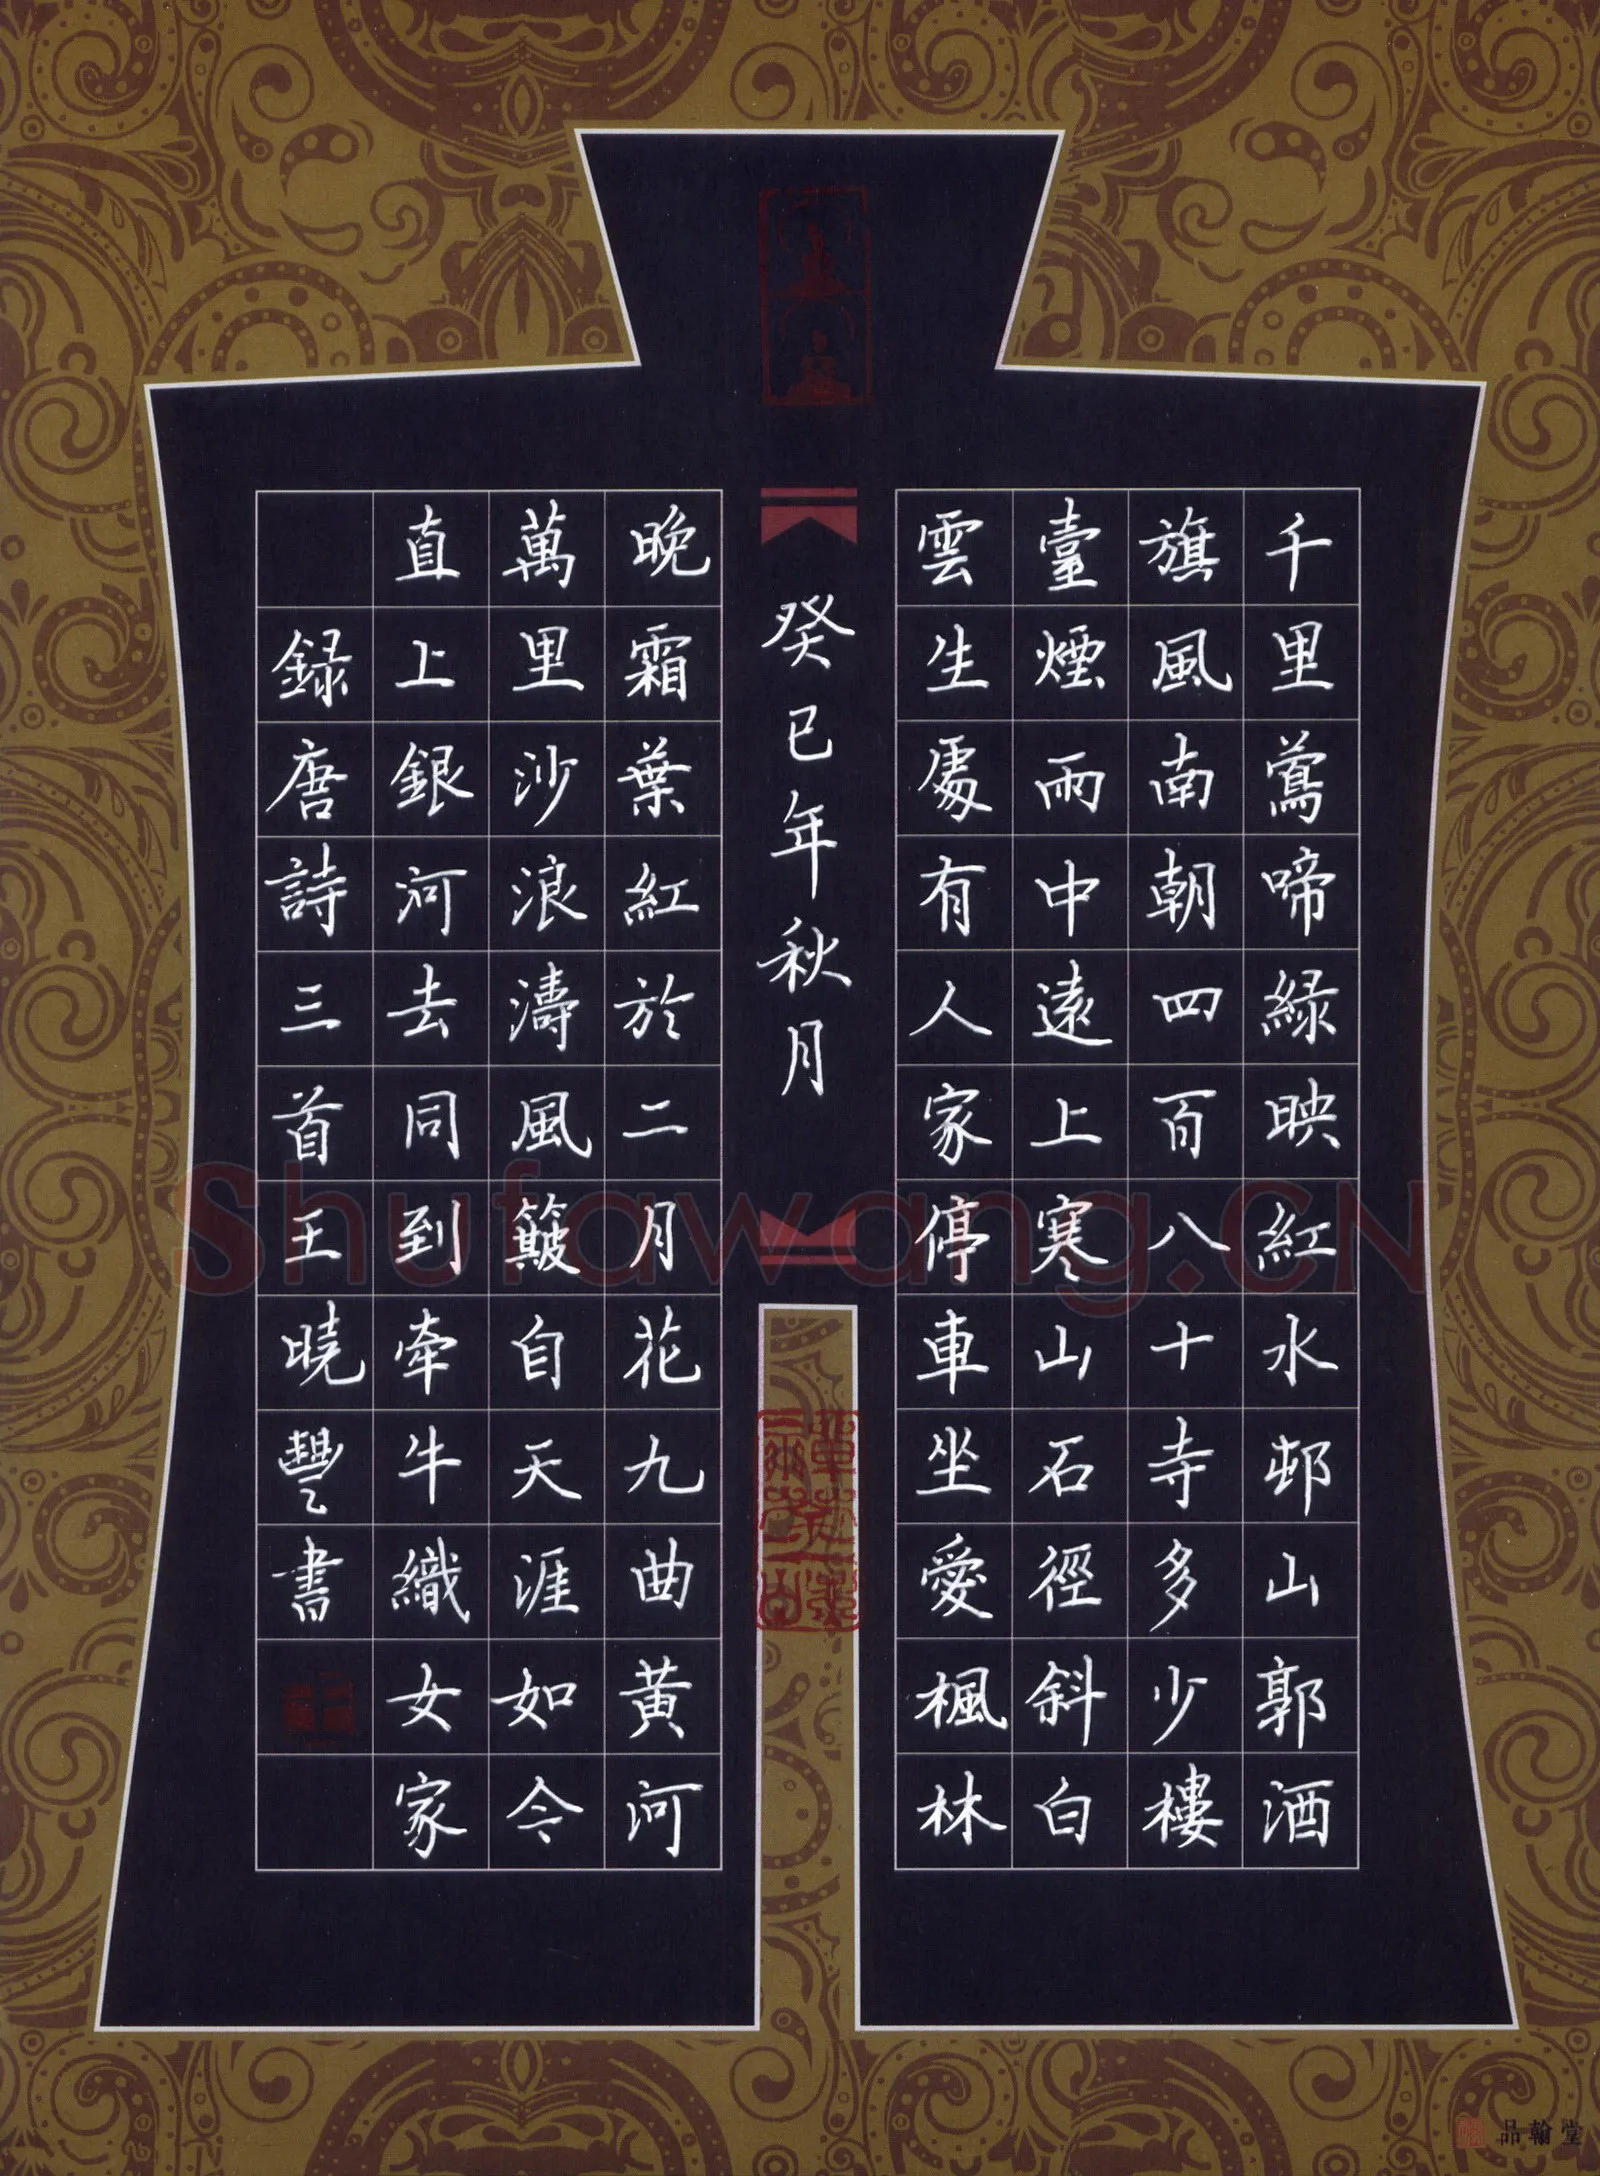 千里鶯啼綠映紅水邨山郭酒
旗風南朝四百八十寺多少樓
臺煙雨中遠上寒山石徑斜白
雲生處有人家停車坐愛楓林
癸巳年秋月
晚霜葉紅於二月花九曲黃河
萬里沙浪濤風簸自天涯如今
直上銀河去同到牽牛織女家
録唐詩三首王曉豐書
Shufawang.CN
品翰堂